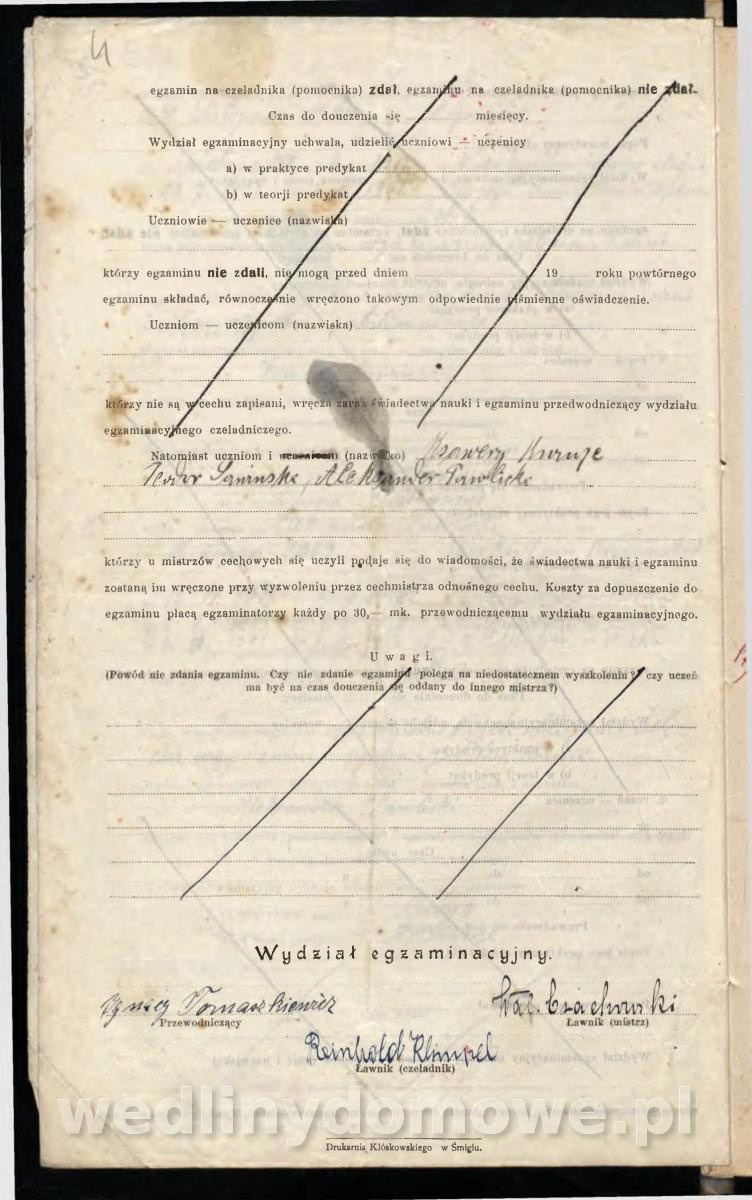 4
egzamin na czeladnika (pomocnika) zdał, egzaminu na czeladnika (pomocnika) nie zdał.
Czas do douczenia się miesięcy.
Wydział egzaminacyjny uchwala, udzielić uczniowi — uczenicy
a) w praktyce predykat
b) w teorji predykat
Uczniowie — uczenice (nazwiska)
którzy egzaminu nie zdali, nie mogą przed dniem 19 roku powtórnego
egzaminu składać, równocześnie wręczono takowym odpowiednie piśmienne oświadczenie.
Uczniom — uczenicom (nazwiska)
którzy nie są w cechu zapisani, wręcza zaraz świadectwa nauki i egzaminu przedwodniczący wydziału
egzaminacyjnego czeladniczego.
Natomiast uczniom i uczenicom (nazwisko) Ksawery
Teodor Aleksander Pawlicki
którzy u mistrzów cechowych się uczyli podaje się do wiadomości, że świadectwa nauki i egzaminu
zostaną im wręczone przy wyzwoleniu przez cechmistrza odnośnego cechu. Koszty za dopuszczenie do
egzaminu płacą egzaminatorzy każdy po 30,— mk. przewodniczącemu wydziału egzaminacyjnego.
Uwagi.
(Powód nie zdania egzaminu. Czy nie zdanie egzaminu polega na niedostatecznem wyszkoleniu? czy uczeń
ma być na czas douczenia się oddany do innego mistrza?)
Wydział egzaminacyjny.
Ignacy Tomaszkiewicz Wal. Czachowski
Przewodniczący Ławnik (mistrz)
Reinhold Klimpel
Ławnik (czeladnik)
wedlinydomowe.pl
Drukarnia Klóskowskiego w Śmiglu.